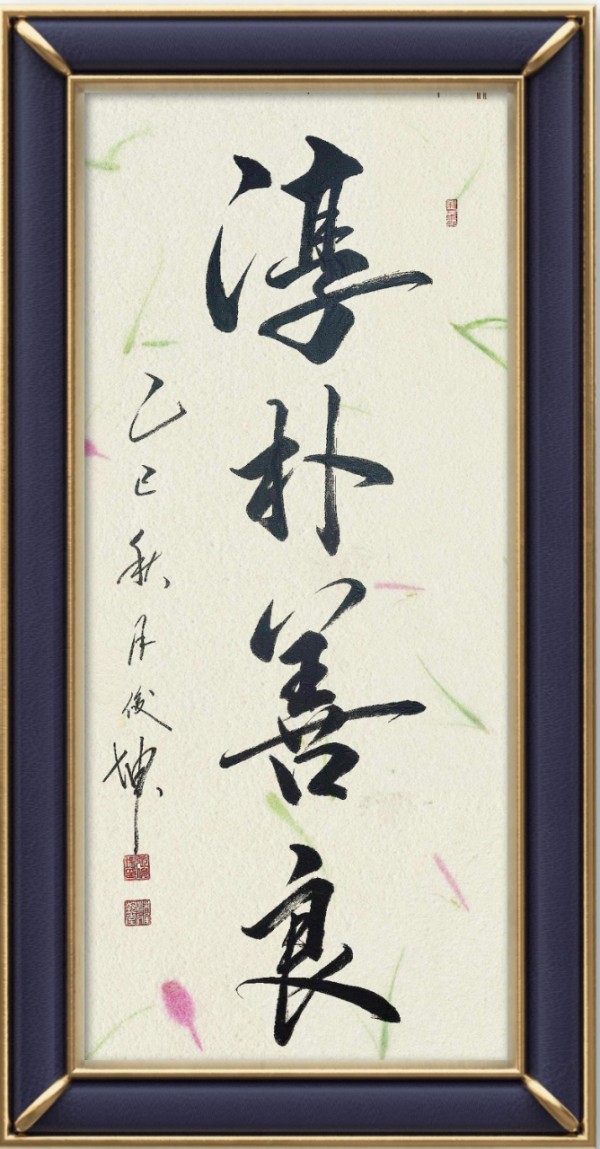 淳朴善良
乙巳秋月俊坤